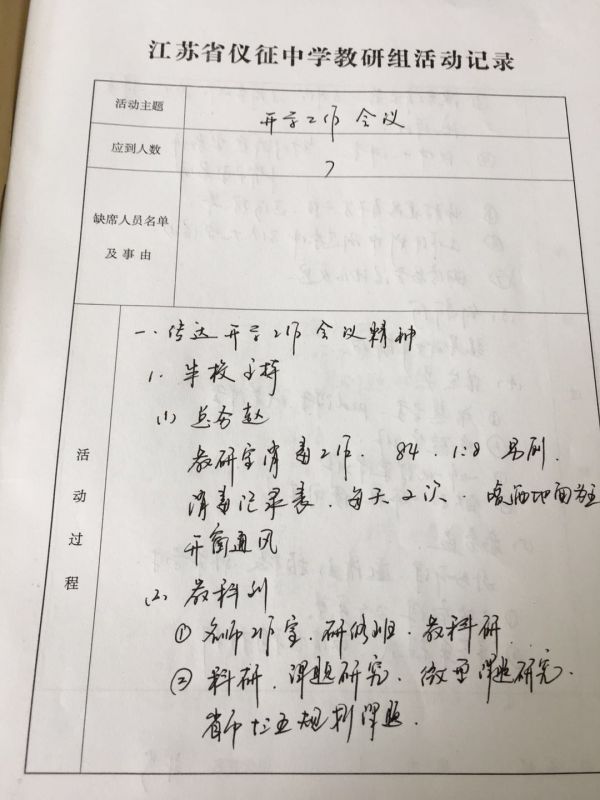 江苏省仪征中学教研组活动记录
活动主题
开学工作会议
应到人数
7
缺席人员名单
及事由
活动过程
一、传达开学工作会议精神
1. 朱校主持
(1) 总务赵
教研室消毒工作. 84. 1:8 另剂.
消毒记录表. 每天2次. 喷洒地面为主
开窗通风
(2) 教科刘
① 名师工作室. 研修班. 教科研
② 科研. 课题研究. 微型课题研究.
省市十三五规划课题.